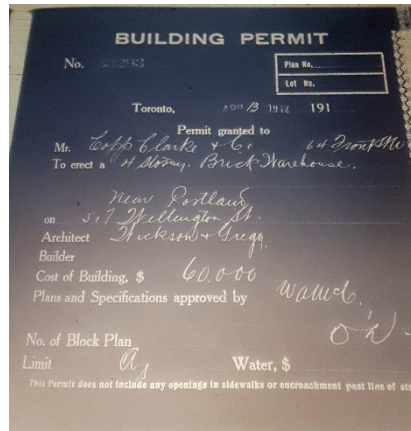 BUILDING PERMIT
No.
Plan No.
Lot No.
Toronto, APR 13 1912 191
Permit granted to
Mr. Copp Clarke & Co. 64 Front St W
To erect a 4 Storey Brick Warehouse.
near Portland
on 517 Wellington St.
Architect Wickson & Gregg
Builder
Cost of Building, $ 60.000
Plans and Specifications approved by
No. of Block Plan
Limit A Water, $
This Permit does not include any openings in sidewalks or encroachment past line of